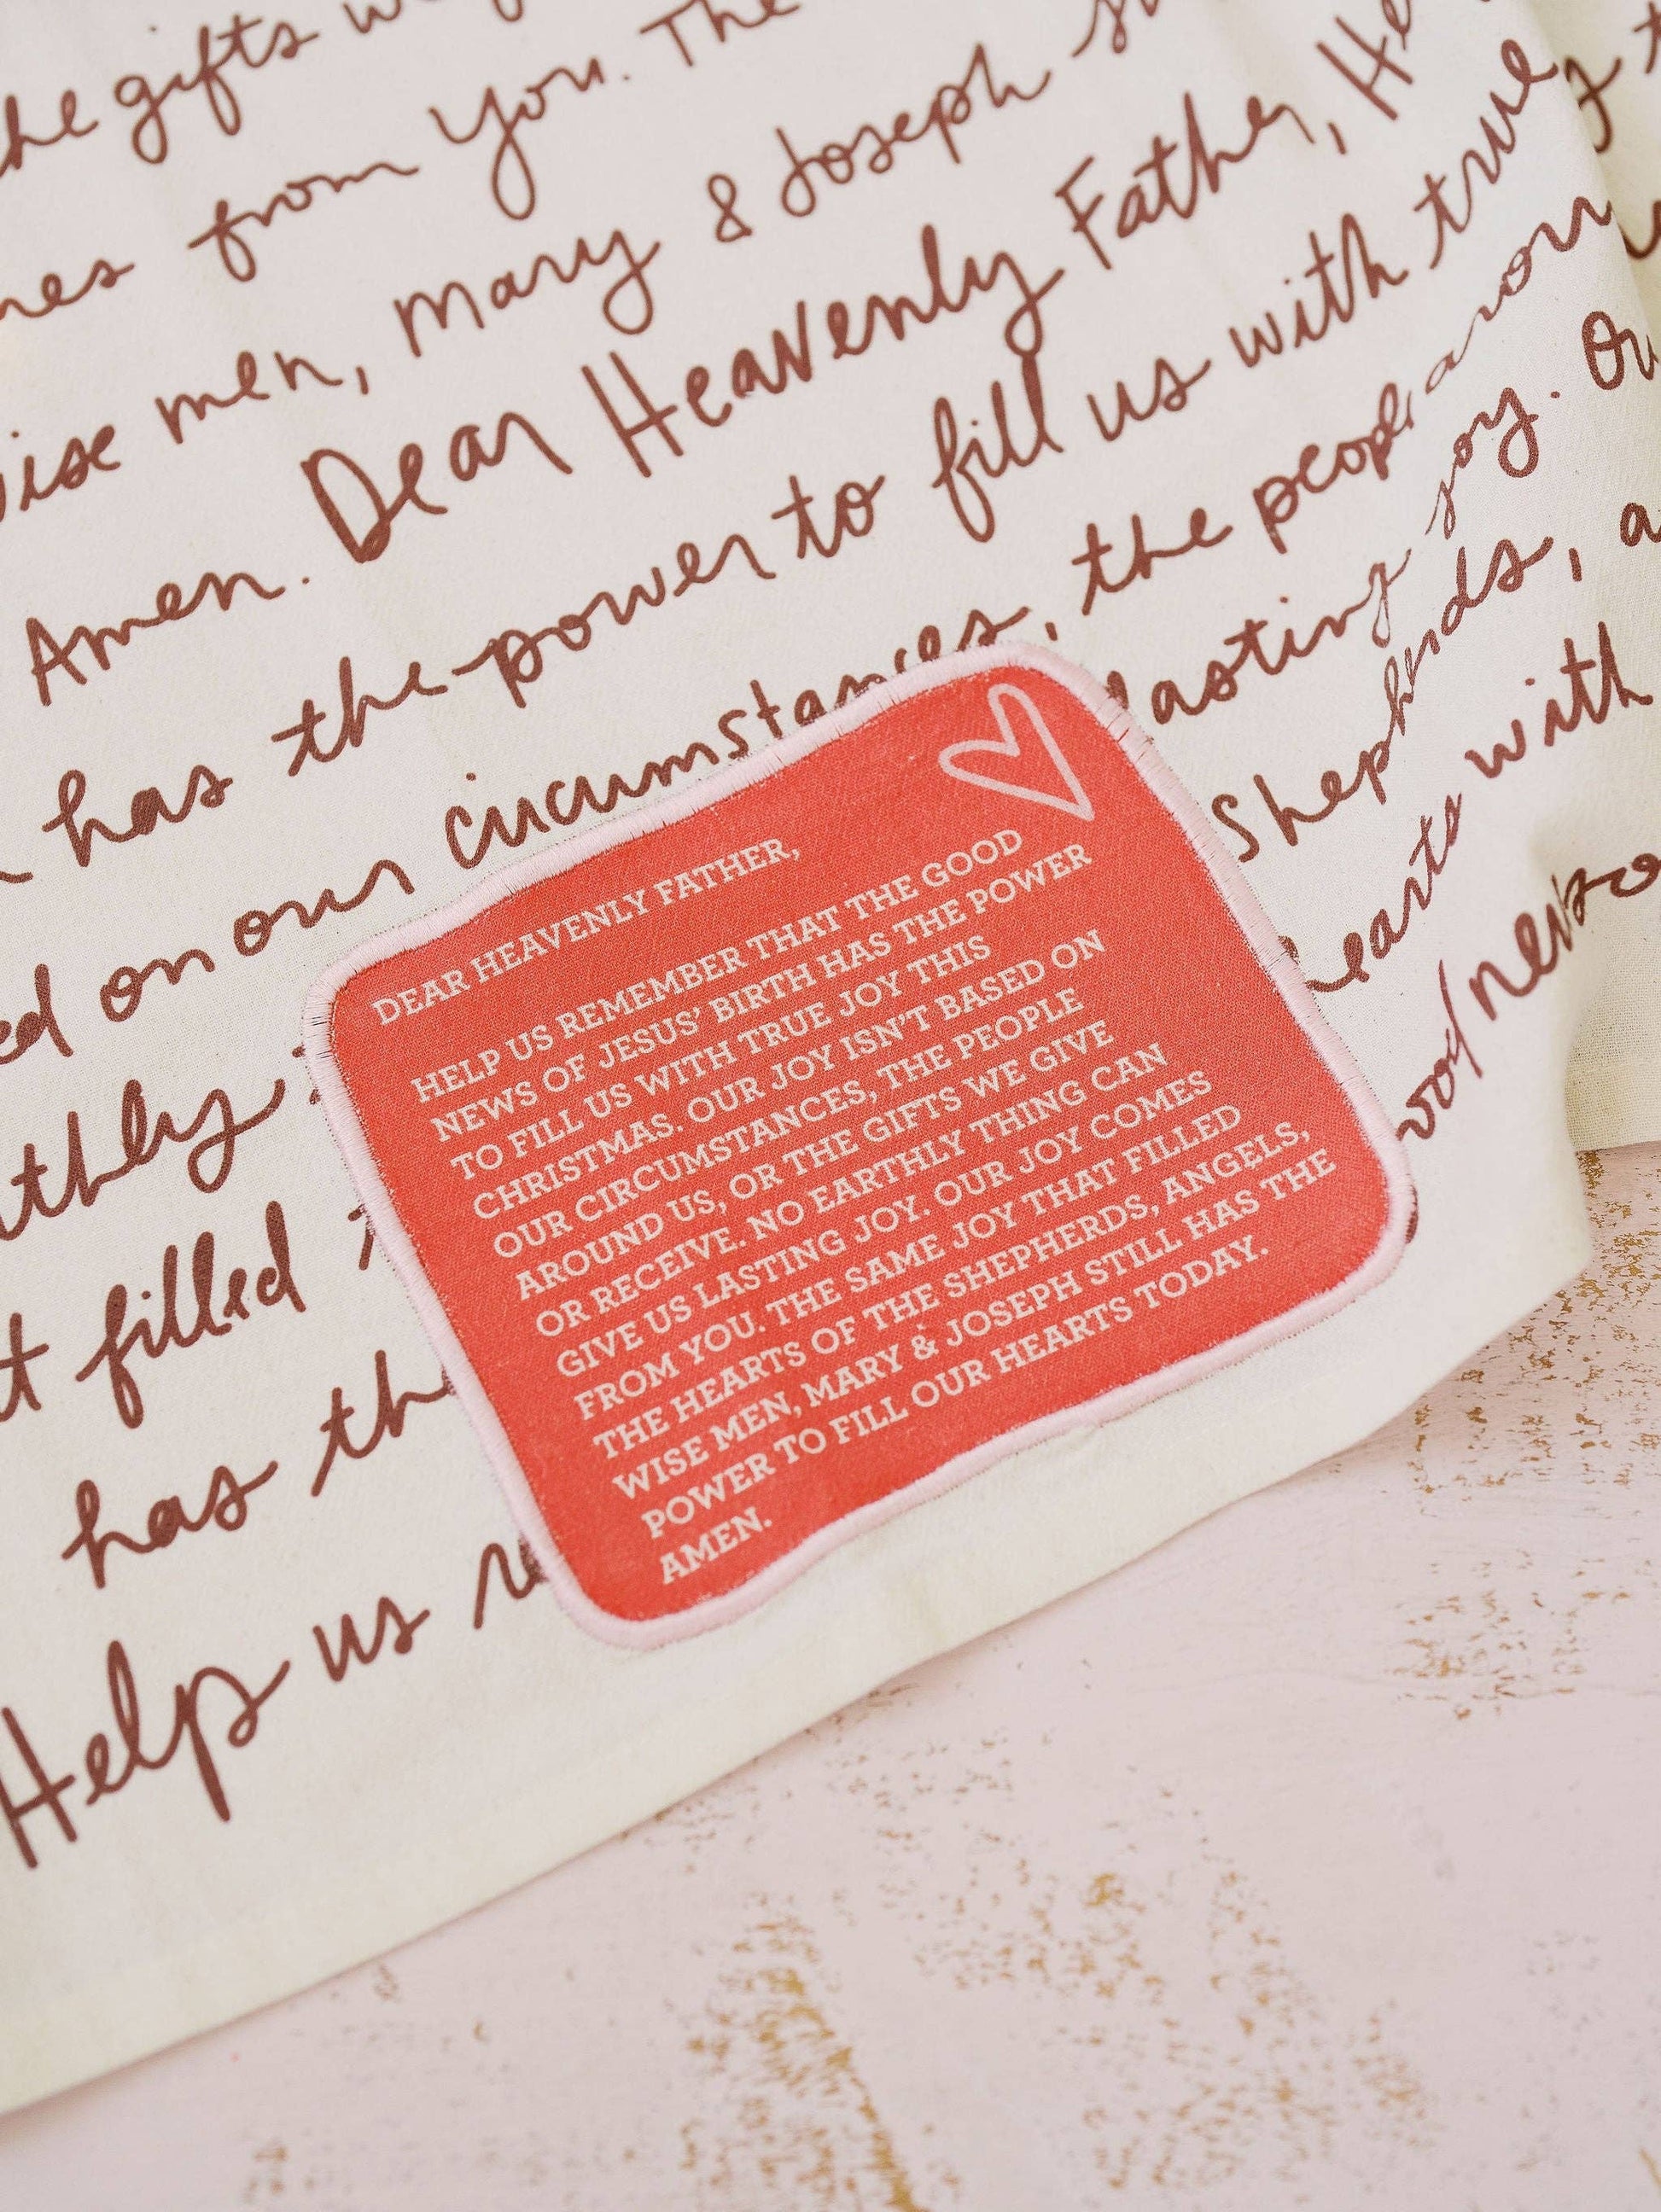 the gifts
from You. The
wise men, Mary & Joseph
Amen. Dear Heavenly Father, He
has the power to fill us with true
on our circumstances, the people aroun
lasting joy. Ou
filled
Shepherds, a
has the
hearts with
Help us
good news
DEAR HEAVENLY FATHER,
HELP US REMEMBER THAT THE GOOD
NEWS OF JESUS' BIRTH HAS THE POWER
TO FILL US WITH TRUE JOY THIS
CHRISTMAS. OUR JOY ISN'T BASED ON
OUR CIRCUMSTANCES, THE PEOPLE
AROUND US, OR THE GIFTS WE GIVE
OR RECEIVE. NO EARTHLY THING CAN
GIVE US LASTING JOY. OUR JOY COMES
FROM YOU. THE SAME JOY THAT FILLED
THE HEARTS OF THE SHEPHERDS, ANGELS,
WISE MEN, MARY & JOSEPH STILL HAS THE
POWER TO FILL OUR HEARTS TODAY.
AMEN.